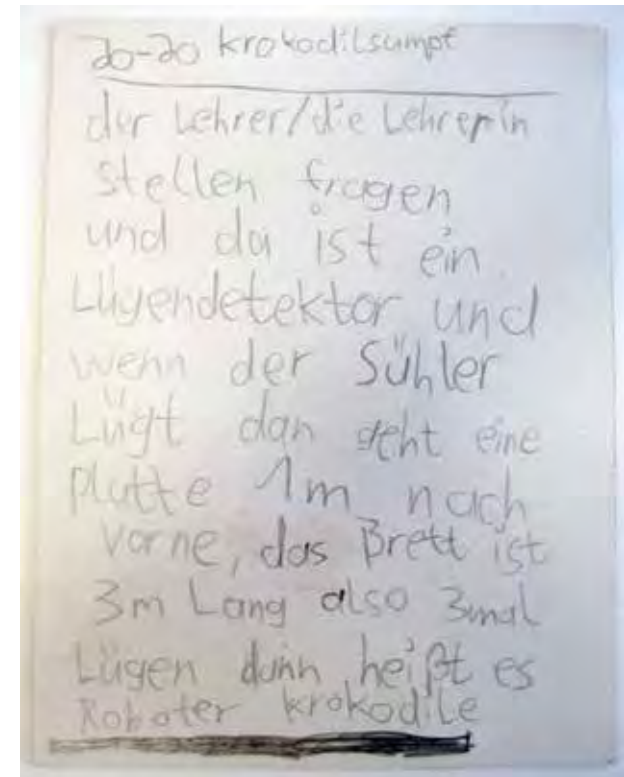 20-20 krokodilsumpf
der Lehrer/die Lehrerin
stellen fragen
und da ist ein
Lügendetektor und
wenn der Sühler
Lügt dan geht eine
platte 1m nach
vorne, das Brett ist
3m Lang also 3mal
Lügen dann heißt es
Roboter krokodile